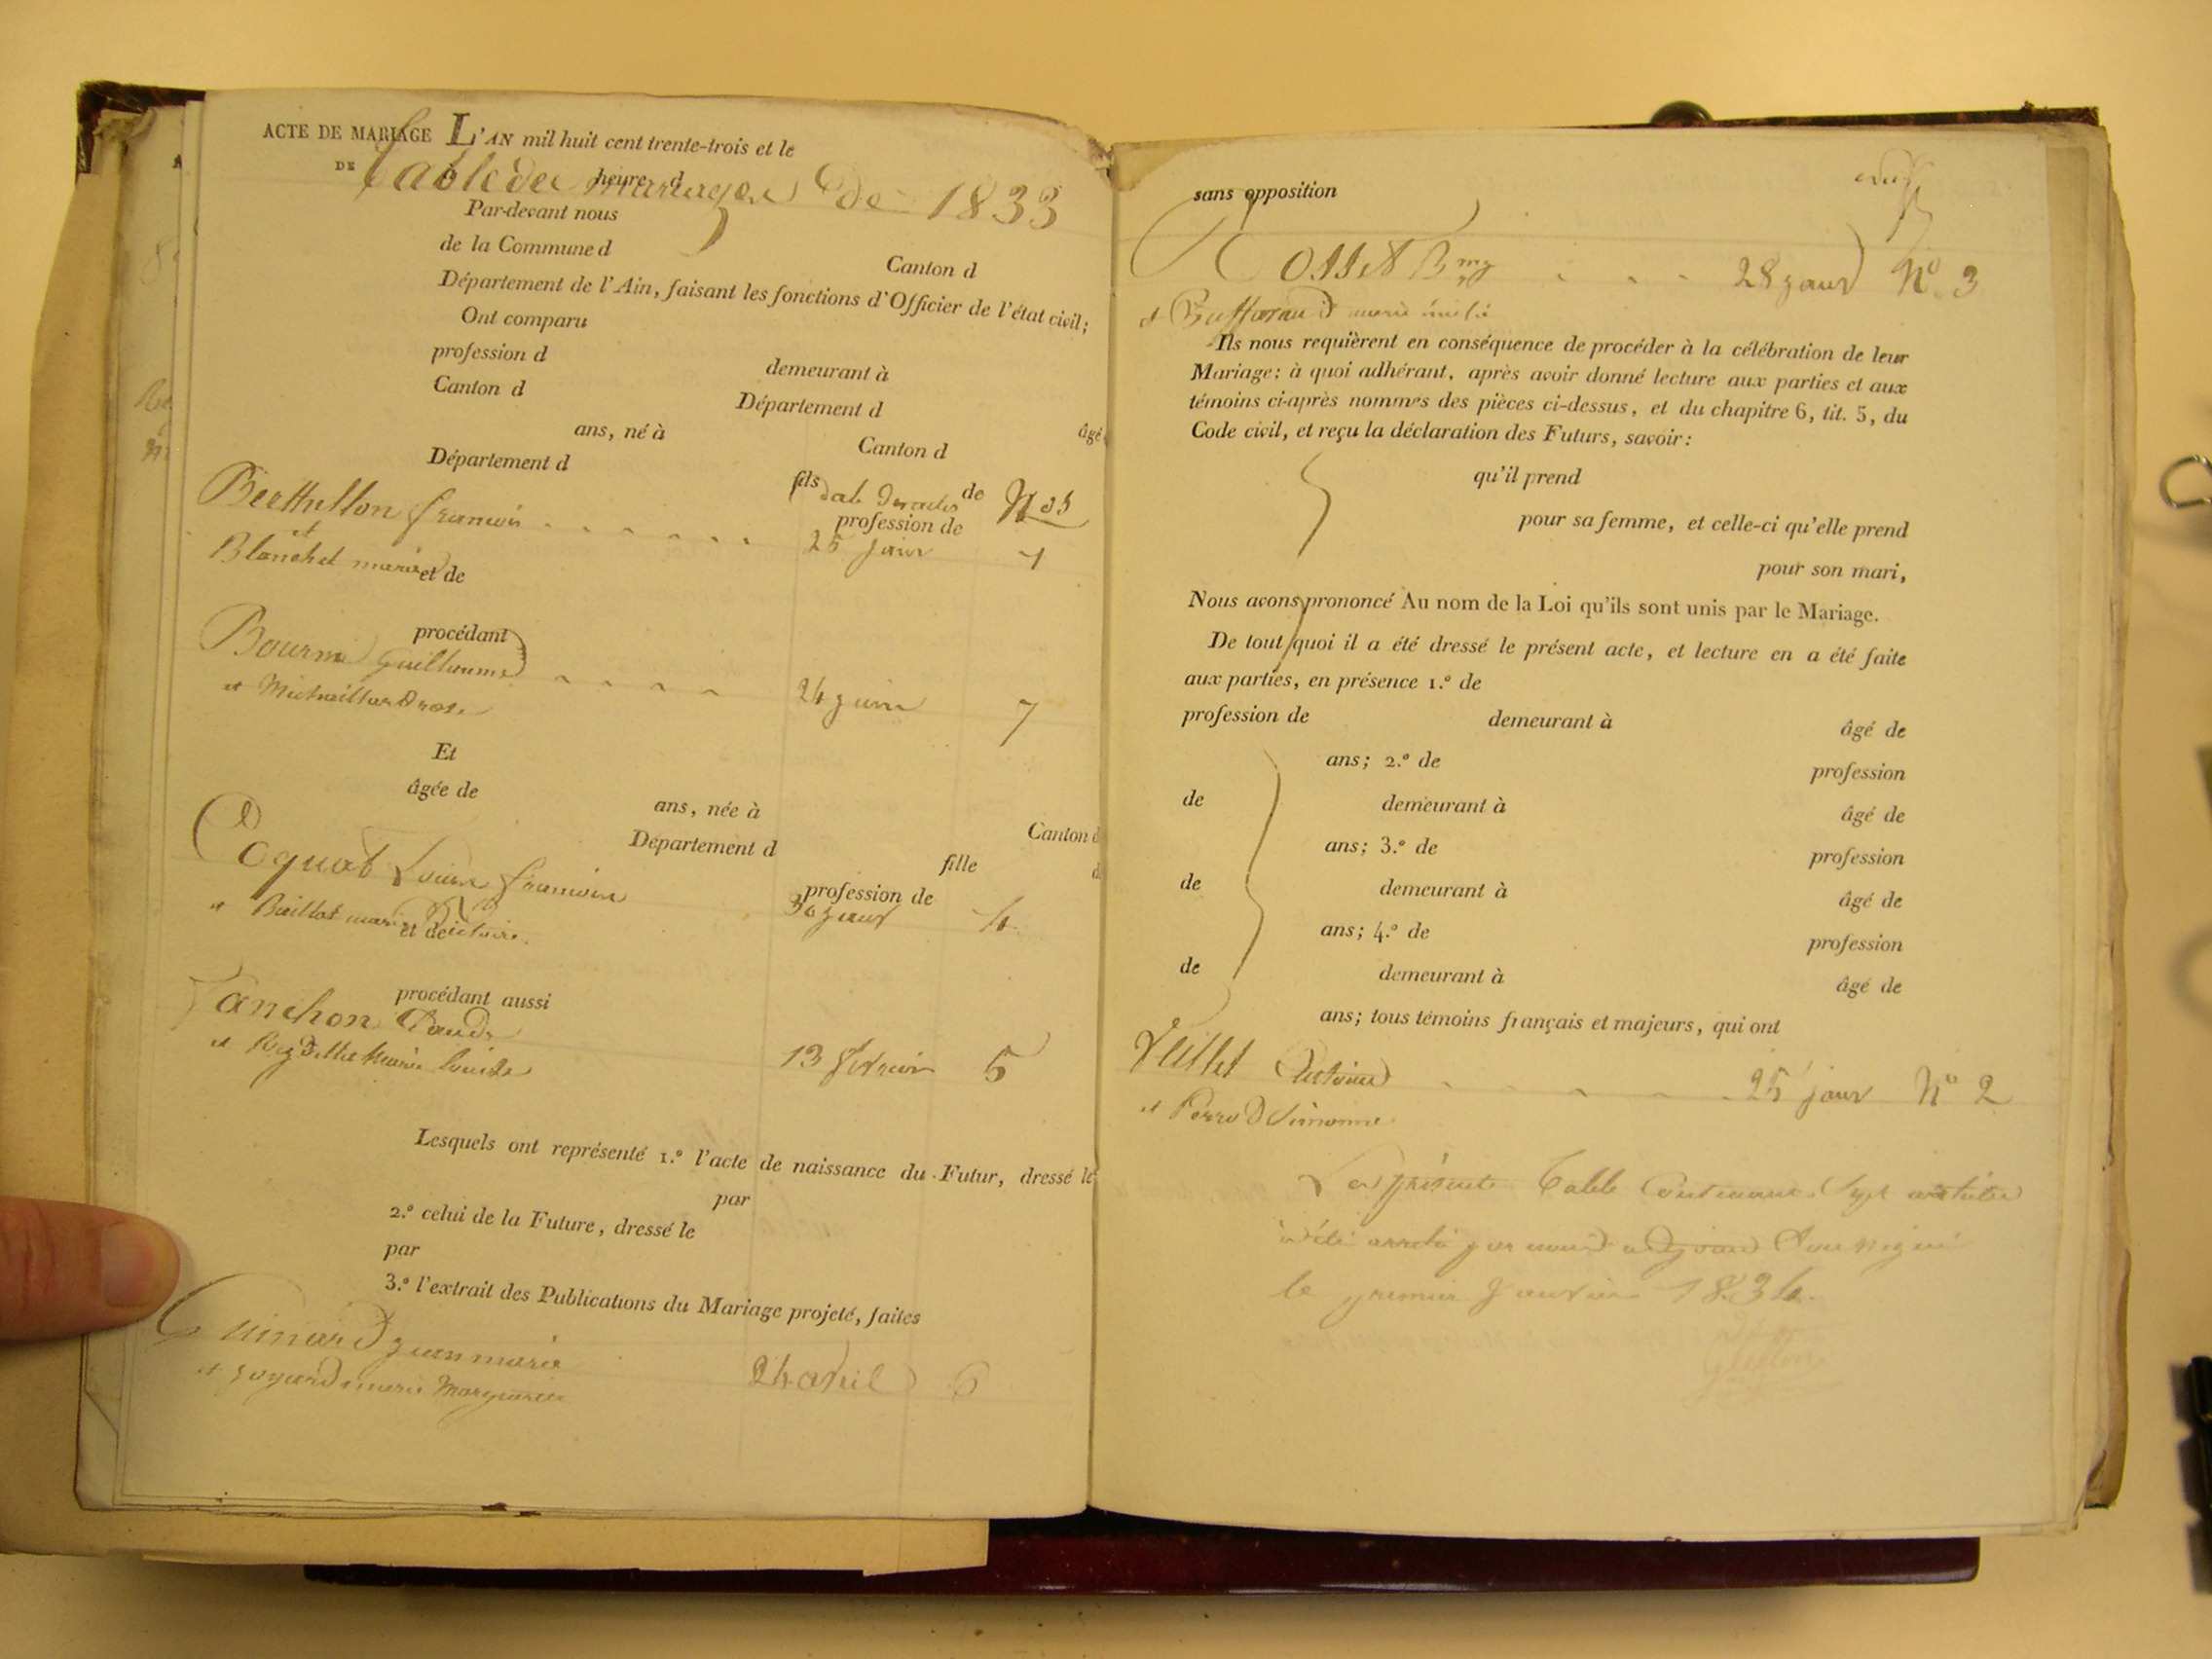 ACTE DE MARIAGE L'AN mil huit cent trente-trois et le
DE heure d
Table des mariages de 1833
Par-devant nous
de la Commune d
Canton d
Département de l'Ain, faisant les fonctions d'Officier de l'état civil;
Ont comparu
profession d demeurant à
Canton d Département d
âgé
ans, né à Canton d
Département d
fils de
date des actes Nos
profession de
Berthillon françois 25 janv 1
et
Blanchet marie
et de
procédant
Bourn Guillaume 24 juin 7
et
Et
âgée de
ans, née à Canton d
Département d
fille d
profession de
Louis françois 30 janv 4
et Buillot marie
et de
procédant aussi
Janchon Claude
et marie Louise 13 février 5
Lesquels ont représenté 1.° l'acte de naissance du Futur, dressé le
par
2.° celui de la Future, dressé le
par
3.° l'extrait des Publications du Mariage projeté, faites
jean marie
et goyard marie Marguerite 24 avril 6
sans opposition
28 janv N° 3
et Buffavand marie
Ils nous requièrent en conséquence de procéder à la célébration de leur
Mariage: à quoi adhérant, après avoir donné lecture aux parties et aux
témoins ci-après nommés des pièces ci-dessus, et du chapitre 6, tit. 5, du
Code civil, et reçu la déclaration des Futurs, savoir:
qu'il prend
pour sa femme, et celle-ci qu'elle prend
pour son mari,
Nous avons prononcé Au nom de la Loi qu'ils sont unis par le Mariage.
De tout quoi il a été dressé le présent acte, et lecture en a été faite
aux parties, en présence 1.° de
profession de demeurant à âgé de
ans; 2.° de profession
de demeurant à âgé de
ans; 3.° de profession
de demeurant à âgé de
ans; 4.° de profession
de demeurant à âgé de
ans; tous témoins français et majeurs, qui ont
Veillet Antoine 25 janv N° 2
et Perrod
La présente Table contenant Sept articles
a été arrêté par nous adjoint Soussigné
le premier Janvier 1834.